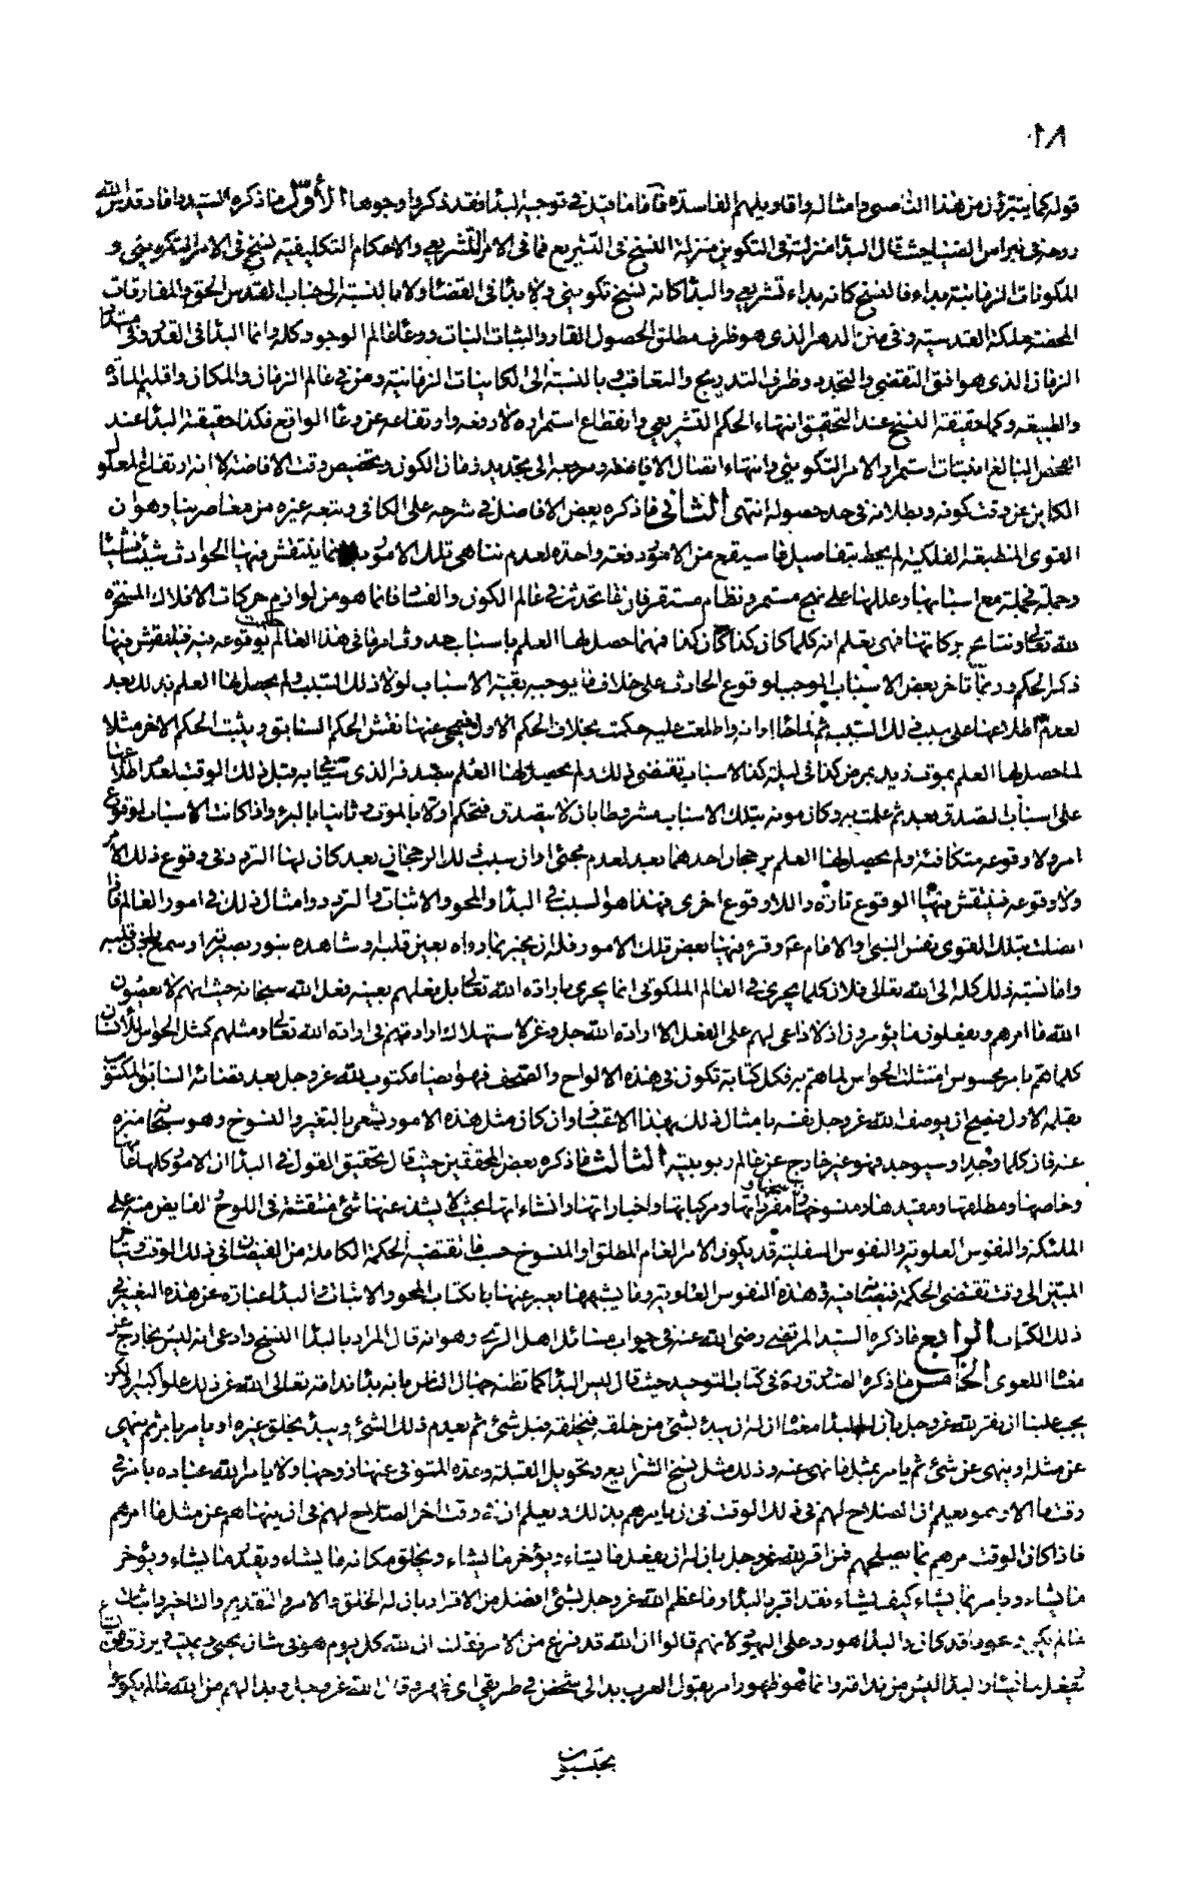 ١٨٦
قوله كما يتبرؤن من هذا الناصبى وامثاله واقاويلهم الفاسدة فآما ما قيل فى توجيه البدأ فقد ذكروا وجوها الأوّل ما ذكره السيد داماد قدس الله
روحه فى نبراس الضيا حيث قال البدأ منزلته فى التكوين منزلة النسخ فى التشريع فما فى الامر التشريعى والاحكام التكليفية نسخ فى الامر التكوينى و
المكونات الزمانية بداء فالنسخ كانه بداء تشريعى والبدأ كانه نسخ تكوينى ولا بدأ فى القضاء ولا بالنسبة الى جناب القدس الحق والمفارقات
المحضة من ملئكته القدسية وفى متن الدهر الذى هو ظرف مطلق الحصول القار والثبات البات ووعاء عالم الوجود كله وانما البدأ فى القدر وفى امتداد
الزمان الذى هو افق التقضى والتجدد وظرف التدريج والتعاقب وبالنسبة الى الكاينات الزمانية ومن فى عالم الزمان والمكان واقليم المادة
والطبيعة وكما حقيقة النسخ عند التحقيق انتهاء الحكم التشريعى وانقطاع استمراره لا رفعه وارتفاعه عن وعاء الواقع فكذا حقيقة البدأ عند
الفحص البالغ انبتات استمرار الامر التكوينى وانتهاء اتصال الافاضة ومرجعه الى تحديد زمان الكون وتخصيص وقت الافاضة لا انه ارتفاع المعلول
الكاين عن وقت كونه وبطلانه فى حد حصوله انتهى الثانى ما ذكره بعض الافاضل فى شرحه على الكافى وتبعه غيره من معاصرينا وهو ان
القوى المنطبعة الفلكية لم يحط بتفاصيل ما سيقع من الامور دفعة واحدة لعدم تناهى تلك الامور بل انما ينتقش فيها الحوادث شيئا فشيئا
وجملة فجملة مع اسبابها وعللها على نهج مستمر ونظام مستقر فان ما تحدث فى عالم الكون والفساد فانما هو من لوازم حركات الافلاك المسخرة
لله تعالى ونتايج بركاتها فهى يعلم انه كلما كان كذا كان كذا فمهما حصل لها العلم باسباب حدوث امر ما فى هذا العالم حكمت بوقوعه فيه فينتقش فيها
ذلك الحكم وربما تاخر بعض الاسباب الموجب لوقوع الحادث على خلاف ما يوجبه بقية الاسباب لولا ذلك السبب ولم يحصل لها العلم بذلك بعد
لعدم اطلاعها على سبب ذلك السبب ثم لما جاء اوانه واطلعت عليه حكمت بخلاف الحكم الاول فيمحى عنها نقش الحكم السابق ويثبت الحكم الاخر مثلا
لما حصل لها العلم بموت زيد بمرض كذا فى ليلة كذا لاسباب تقتضى ذلك ولم يحصل لها العلم بتصدقه الذى سيأتى به قبل ذلك الوقت لعدم اطلاعها
على اسباب التصدق بعد ثم علمت به وكان موته بتلك الاسباب مشروطا بان لا يتصدق فتحكم اولا بالموت وثانيا بالبرء واذا كانت الاسباب لوقوع
امر ولا وقوعه متكافئة ولم يحصل لها العلم برجحان احدهما بعد لعدم مجئ اوان سبب ذلك الرجحان بعد كان لها التردد فى وقوع ذلك الامر
ولا وقوعه فينتقش فيها الوقوع تارة واللاوقوع اخرى فهذا هو السبب فى البدأ والمحو والاثبات والتردد وامثال ذلك فى امور العالم فاذا
اتصلت بتلك القوى نفس النبى او الامام ع وقرء فيها بعض تلك الامور فله ان يخبر بما رواه بعين قلبه او شاهده بنور بصيرته او سمع باذن قلبه
واما نسبة ذلك كله الى الله تعالى فلان كلما يجرى فى العالم الملكوتى انما يجرى بارادة الله تعالى بل فعلهم بعينه فعل الله سبحانه حيث انهم لا يعصون
الله ما امرهم ويفعلون ما يؤمرون اذ لا داعى لهم على الفعل الا ارادة الله جل وعز لاستهلاك ارادتهم فى ارادة الله تعالى ومثلهم كمثل الحواس للأنسان
كلما هم بامر محسوس امتثلت الحواس لما هم به فكل كتابة تكون فى هذه الالواح والصحف فهو ايضا مكتوب لله عز وجل بعد قضائه السابق المكتوب
بقلمه الاول فيصح ان يوصف الله عز وجل نفسه بامثال ذلك بهذا الاعتبار وان كان مثل هذه الامور يشعر بالتغير والنسوخ وهو سبحانه منزه
عنه فان كلما وجد او سيوجد فهو غير خارج عن عالم ربوبيته الثالث ما ذكره بعض المحققين حيث قال تحقيق القول فى البدأ ان الامور كلها عامها
وخاصها ومطلقها ومقيدها ومنسوخها وناسخها ومفرداتها ومركباتها واخباراتها وانشاءاتها بحيث لا يشذ عنها شئ منتقشة فى اللوح الفايض منه على
الملئكة والنفوس العلوية والنفوس السفلية قد يكون الامر العام المطلق او المنسوخ حسب ما تقتضيه الحكمة الكاملة من الفيضان فى ذلك الوقت ويتأخر
المبين الى وقت تقتضى الحكمة فيضانه فيه وهذه النفوس العلوية وما يشبهها يعبر عنها بكتاب المحو والاثبات والبدأ عبارة عن هذه التغيير فى
ذلك الكتاب الرابع ما ذكره السيد المرتضى رضى الله عنه فى جواب مسائل اهل الرى وهو انه قال المراد بالبدأ النسخ وادعى انه ليس بخارج عن
معناه اللغوى الخامس ما ذكره الصدوق ره فى كتاب التوحيد حيث قال ليس البدأ كما تظنه جهال الناس بانه بدأ ندامة تعالى الله عن ذلك علوا كبيرا ولكن
يجب علينا ان نقر لله عز وجل بان له البدأ معناه ان له ان يبدأ بشئ من خلقه فيخلقه قبل شئ ثم يعدم ذلك الشئ ويبدأ بخلق غيره او يامر بامر ثم ينهى
عن مثله او ينهى عن شئ ثم يامر بمثل ما نهى عنه وذلك مثل نسخ الشرايع وتحويل القبلة وعدة المتوفى عنها زوجها ولا يامر الله عباده بامر فى
وقت ما الا وهو يعلم ان الصلاح لهم فى ذلك الوقت فى ان يامرهم بذلك ويعلم ان فى وقت اخر الصلاح لهم فى ان ينهاهم عن مثل ما امرهم
فاذا كان ذلك الوقت امرهم بما يصلحهم فمن اقر لله عز وجل بان له ان يفعل ما يشاء ويؤخر ما يشاء ويخلق مكانه ما يشاء ويقدم ما يشاء ويؤخر
ما يشاء ويامر بما يشاء كيف يشاء فقد اقر بالبدأ وما عظم الله عز وجل بشئ افضل من الاقرار بان له الخلق والامر والتقديم والتاخير واثبات
ما لم يكن ومحو ما قد كان والبدأ هو رد على اليهود لانهم قالوا ان الله قد فرغ من الامر فقلنا ان الله كل يوم هو فى شان يحيى ويميت ويرزق ويفعل
ما يشاء والبدأ ليس من ندامة وانما هو ظهور امر يقول العرب بدا لى شخص فى طريقى اى ظهر وقال الله عز وجل وبدا لهم من الله ما لم يكونوا
يحتسبون